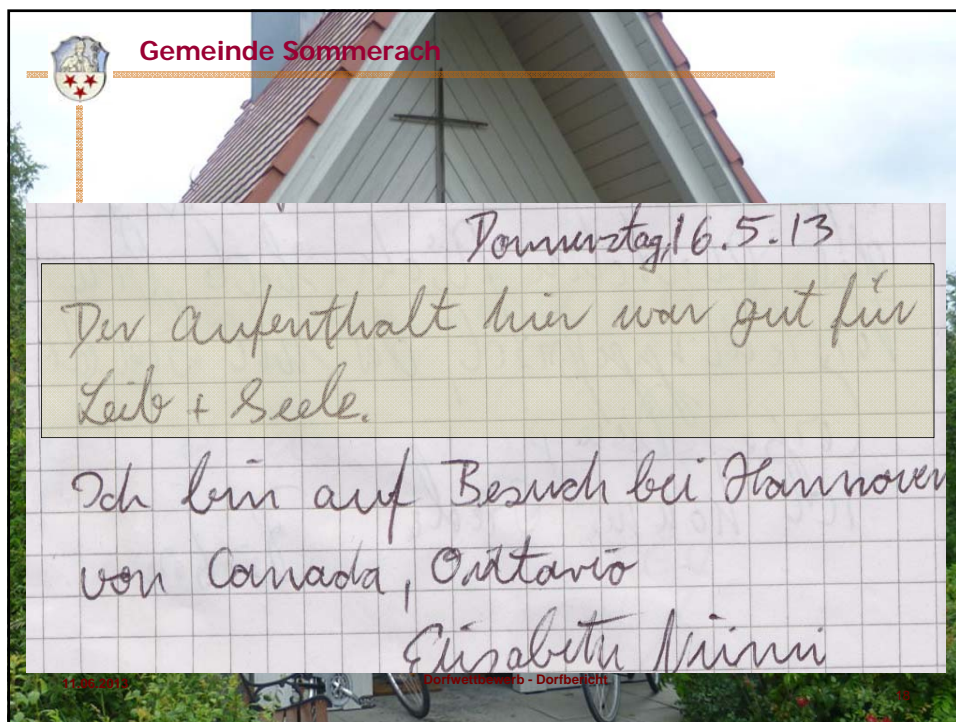 Gemeinde Sommerach
Donnerstag, 16.5.13
Der Aufenthalt hier war gut für
Leib + Seele.
Ich bin auf Besuch bei Hannover
von Canada, Ontario
Elisabeth
11.06.2013
Dorfwettbewerb - Dorfbericht